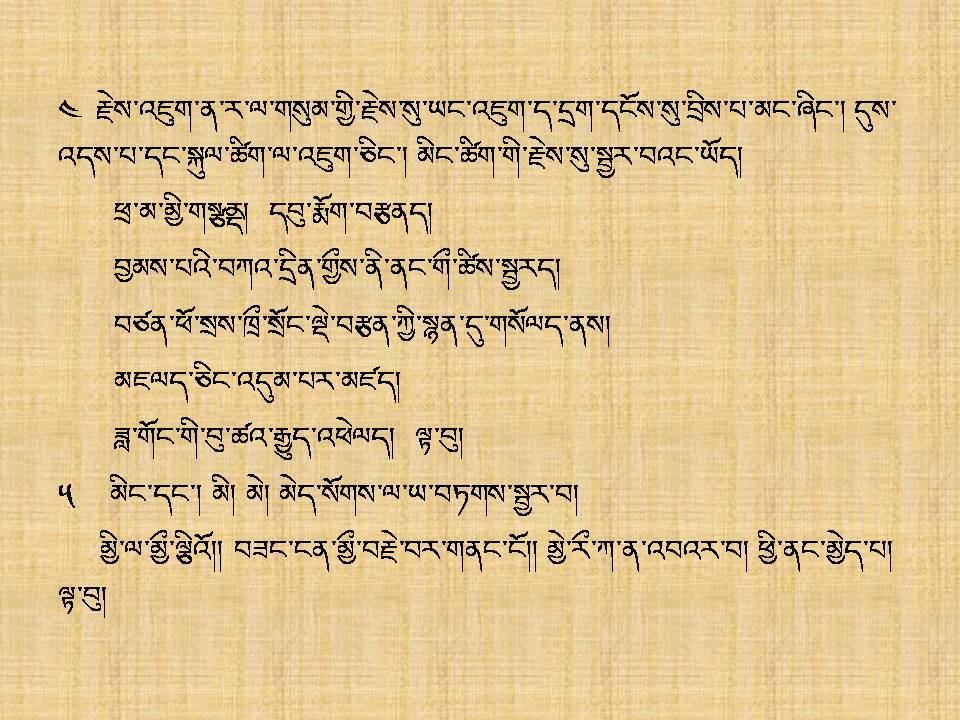 ༤ རྗེས་འཇུག་ན་ར་ལ་གསུམ་གྱི་རྗེས་སུ་ཡང་འཇུག་ད་དྲག་དངོས་སུ་བྲིས་པ་མང་ཞིང་། དུས་
འདས་པ་དང་སྐུལ་ཚིག་ལ་འཇུག་ཅིང་། མིང་ཚིག་གི་རྗེས་སུ་སྦྱར་བའང་ཡོད།
ཕྲ་མ་མྱི་གསྩནྡ། དབུ་རྨོག་བརྩནད།
བྱམས་པའི་བཀའ་དྲིན་གྱྀས་ནི་ནང་གྀ་ཚིས་སྦྱརད།
བཙན་ཕོ་སྲས་ཁྲྀ་སྲོང་ལྡེ་བརྩན་ཀྱི་སྙན་དུ་གསོལད་ནས།
མཇལད་ཅིང་འདུམ་པར་མཛད།
ཟླ་གོང་གི་བུ་ཚའ་རྒྱུད་འཕེལད། ལྟ་བུ།
༥ མིང་དང་། མི། མེ། མེད་སོགས་ལ་ཡ་བཏགས་སྦྱར་བ།
མྱི་ལ་མྱྀ་ལྕིའོ།། བཟང་ངན་མྱྀ་བརྗེ་བར་གནང་ངོ།། མྱེ་རྀ་ཀ་ན་འབའར་བ། ཕྱི་ནང་མྱེད་པ།
ལྟ་བུ།